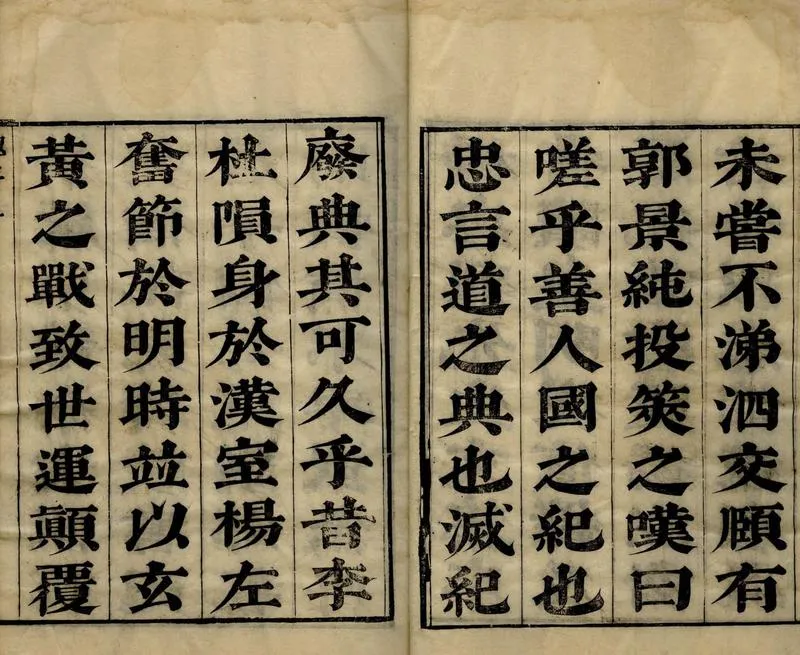 未嘗不涕泗交頤有
郭景純投筴之嘆曰
嗟乎善人國之紀也
忠言道之典也滅紀
廢典其可久乎昔李
杜隕身於漢室楊左
奮節於明時並以玄
黃之戰致世運顛覆